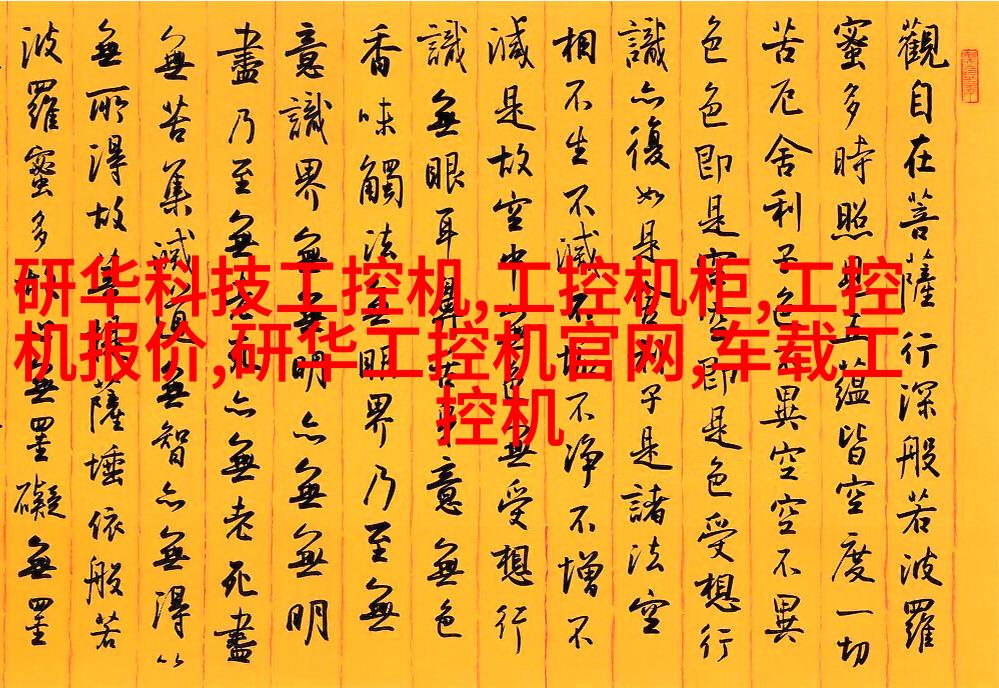 觀自在菩薩行深般若波羅
蜜多時照見五蘊皆空度一切
苦厄舍利子色不異空空不異
色色即是空空即是色受想行
識亦復如是舍利子是諸法空
相不生不滅不垢不浄不增不
減是故空中無色無受想行
識無眼耳鼻舌身意無色
香味觸法無眼界乃至無
意識界無無明亦無無明
盡乃至無老死亦無老死盡
無苦集滅道無智亦無得以
無所得故菩提薩埵依般若
波羅蜜多故心無罣礙無罣
研华科技工控机,工控机柜,工控
机报价,研华工控机官网,车载工
控机